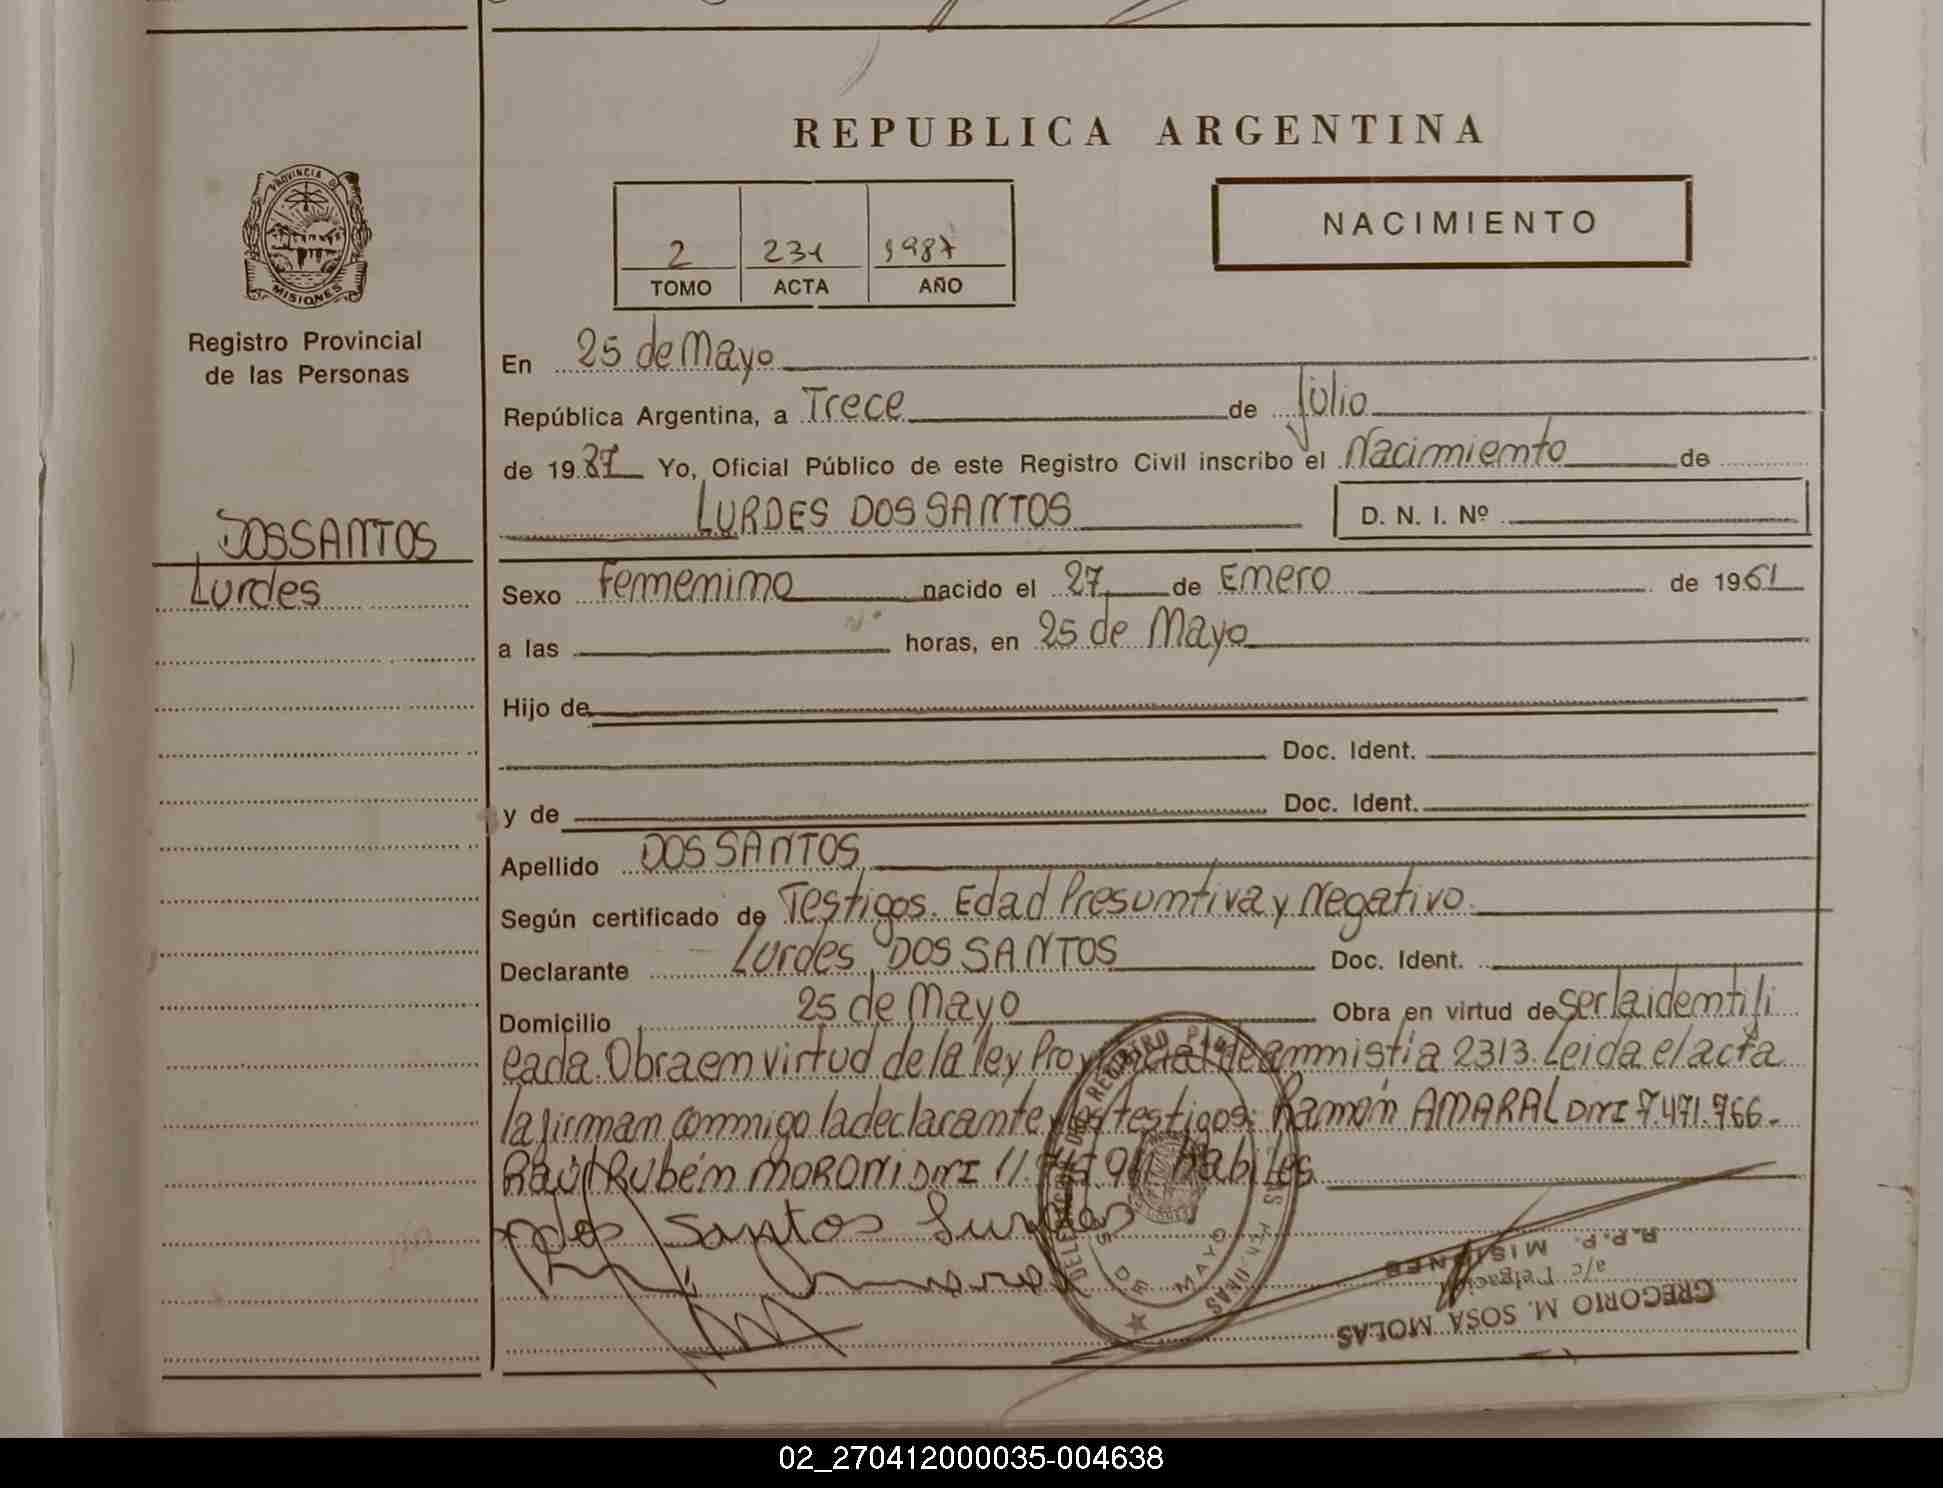 REPUBLICA ARGENTINA
NACIMIENTO
2 231 1987
TOMO ACTA AÑO
PROVINCIA DE
MISIONES
Registro Provincial
de las Personas
DOSSANTOS
Lurdes
En 25 de Mayo
República Argentina, a Trece de Julio
de 1987 Yo, Oficial Público de este Registro Civil inscribo el Nacimiento de
LURDES DOS SANTOS D. N. I. Nº
Sexo Femenino nacido el 27 de Enero de 1961
a las horas, en 25 de Mayo
Hijo de
Doc. Ident.
y de Doc. Ident.
Apellido DOS SANTOS
Según certificado de Testigos. Edad Presumtiva y Negativo.
Declarante Lurdes DOS SANTOS Doc. Ident.
Domicilio 25 de Mayo Obra en virtud de ser la identifi
cada. Obra en virtud de la ley Provincial de amnistia 2313. Leida el acta
la firman conmigo la declarante y los testigos: Ramón AMARAL DNI 7.471.766.-
Raúl Rubén MORONI DNI 11. habiles
Dos Santos Lurdes
DE MAYO
R.P.P. MISIONES
a/c Delegación
GREGORIO M. SOSA MOLAS
02_270412000035-004638